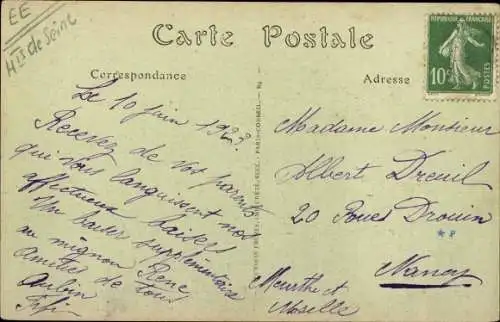 EE
Hts de Seine
Carte Postale
Correspondance
Adresse
RÉPUBLIQUE FRANÇAISE
10c
POSTES
Le 10 juin 1923
Recevez de vos parents
qui vous languissent nos
affectueux baisers
Un baiser supplémentaire
au mignon René
Amitiés de tous
Aubin
Fifi
Madame Monsieur
Albert Dreuil
20 Roues Drouin
Nancy
Meurthe et
Moselle